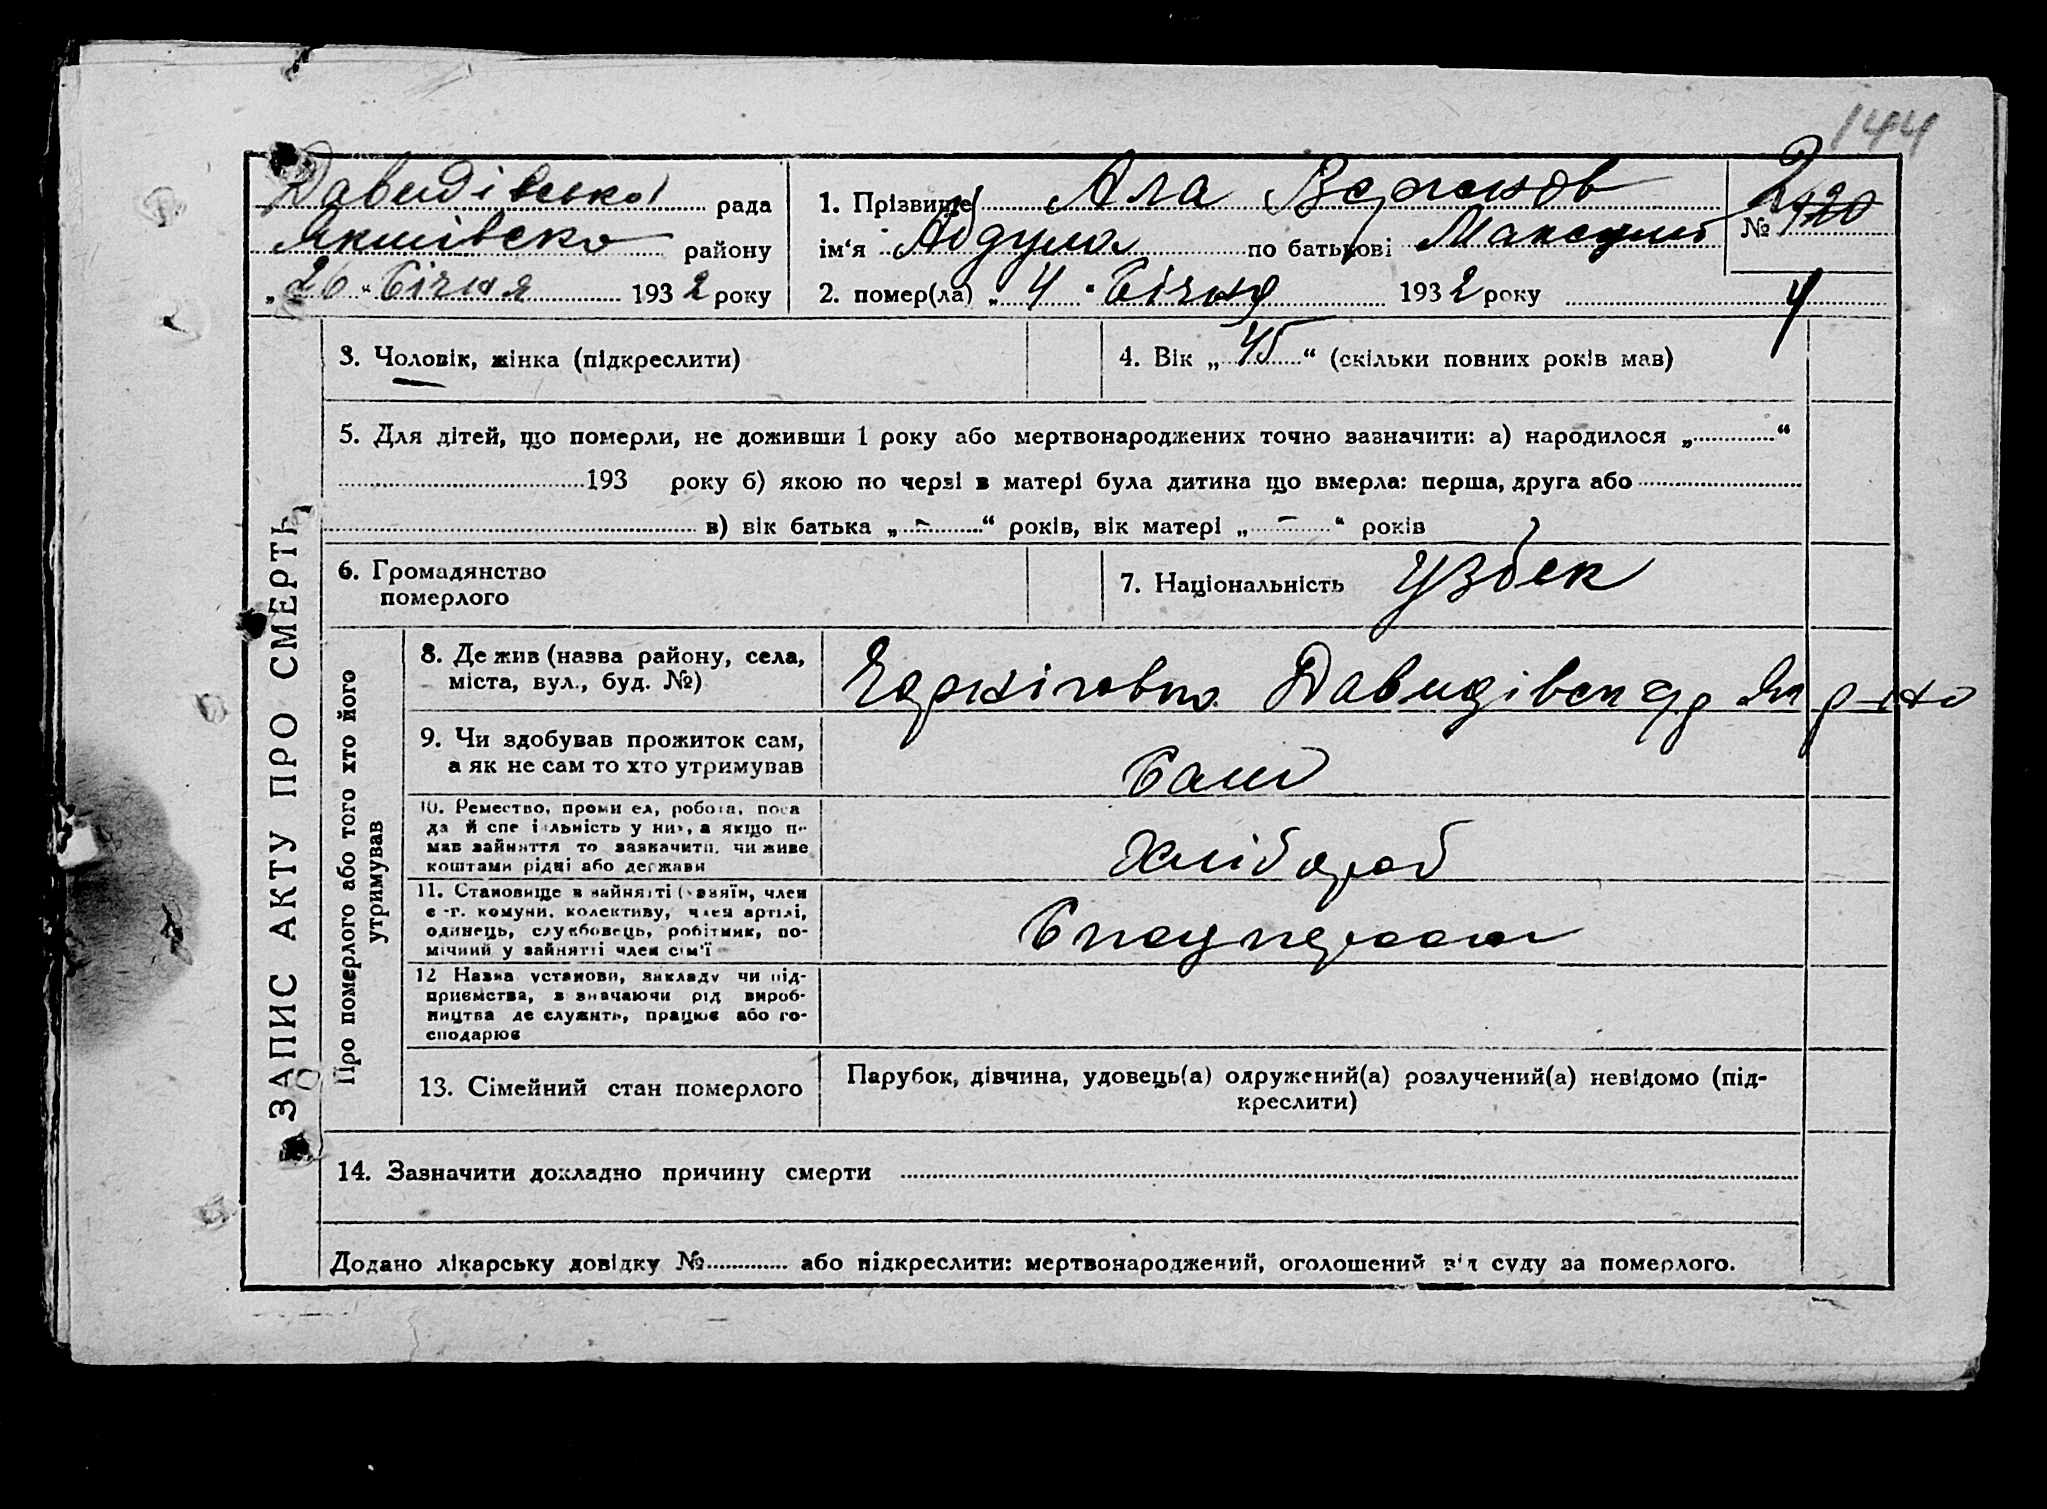 144
Давидівської рада
Якимівсько району
„26“ Січня 1932 року
1. Прізвище Ала
№ 2 120
ім‘я Абдула по батькові
2. помер(ла) „4“ Січня 1932 року
4
ЗАПИС АКТУ ПРО СМЕРТЬ
3. Чоловік, жінка (підкреслити)
4. Вік „45“ (скільки повних років мав)
5. Для дітей, що померли, не доживши 1 року або мертвонароджених точно зазначити: а) народилося „ “
193 року б) якою по черзі в матері була дитина що вмерла: перша, друга або
в) вік батька „ - “ років, вік матері „ - “ років
6. Громадянство
померлого
7. Національність Узбек
Про померлого або того хто його
утримував
8. Де жив (назва району, села,
міста, вул., буд. №)
Давидівск
9. Чи здобував прожиток сам,
а як не сам то хто утримував
Сам
10. Ремество, проми ел, робота, поса
да й спе і льність у ни , а якщо н
мав зайняття то зазначити, чи живе
коштами рідні або держави
Хлібороб
11. Становище в зайнятті (хазяїн, член
с -г. комуни, колективу, член артілі,
одинець, службовець, робітник, по-
мічний у зайнятті член сім‘ї
12 Назва установи, закладу чи під-
приємства, з значаючи рід вироб-
ництва де служить, працює або го-
сподарює
13. Сімейний стан померлого
Парубок, дівчина, удовець(а) одружений(а) розлучений(а) невідомо (під-
креслити)
14. Зазначити докладно причину смерти
Додано лікарську довідку № або підкреслити: мертвонароджений, оголошений від суду за померлого.